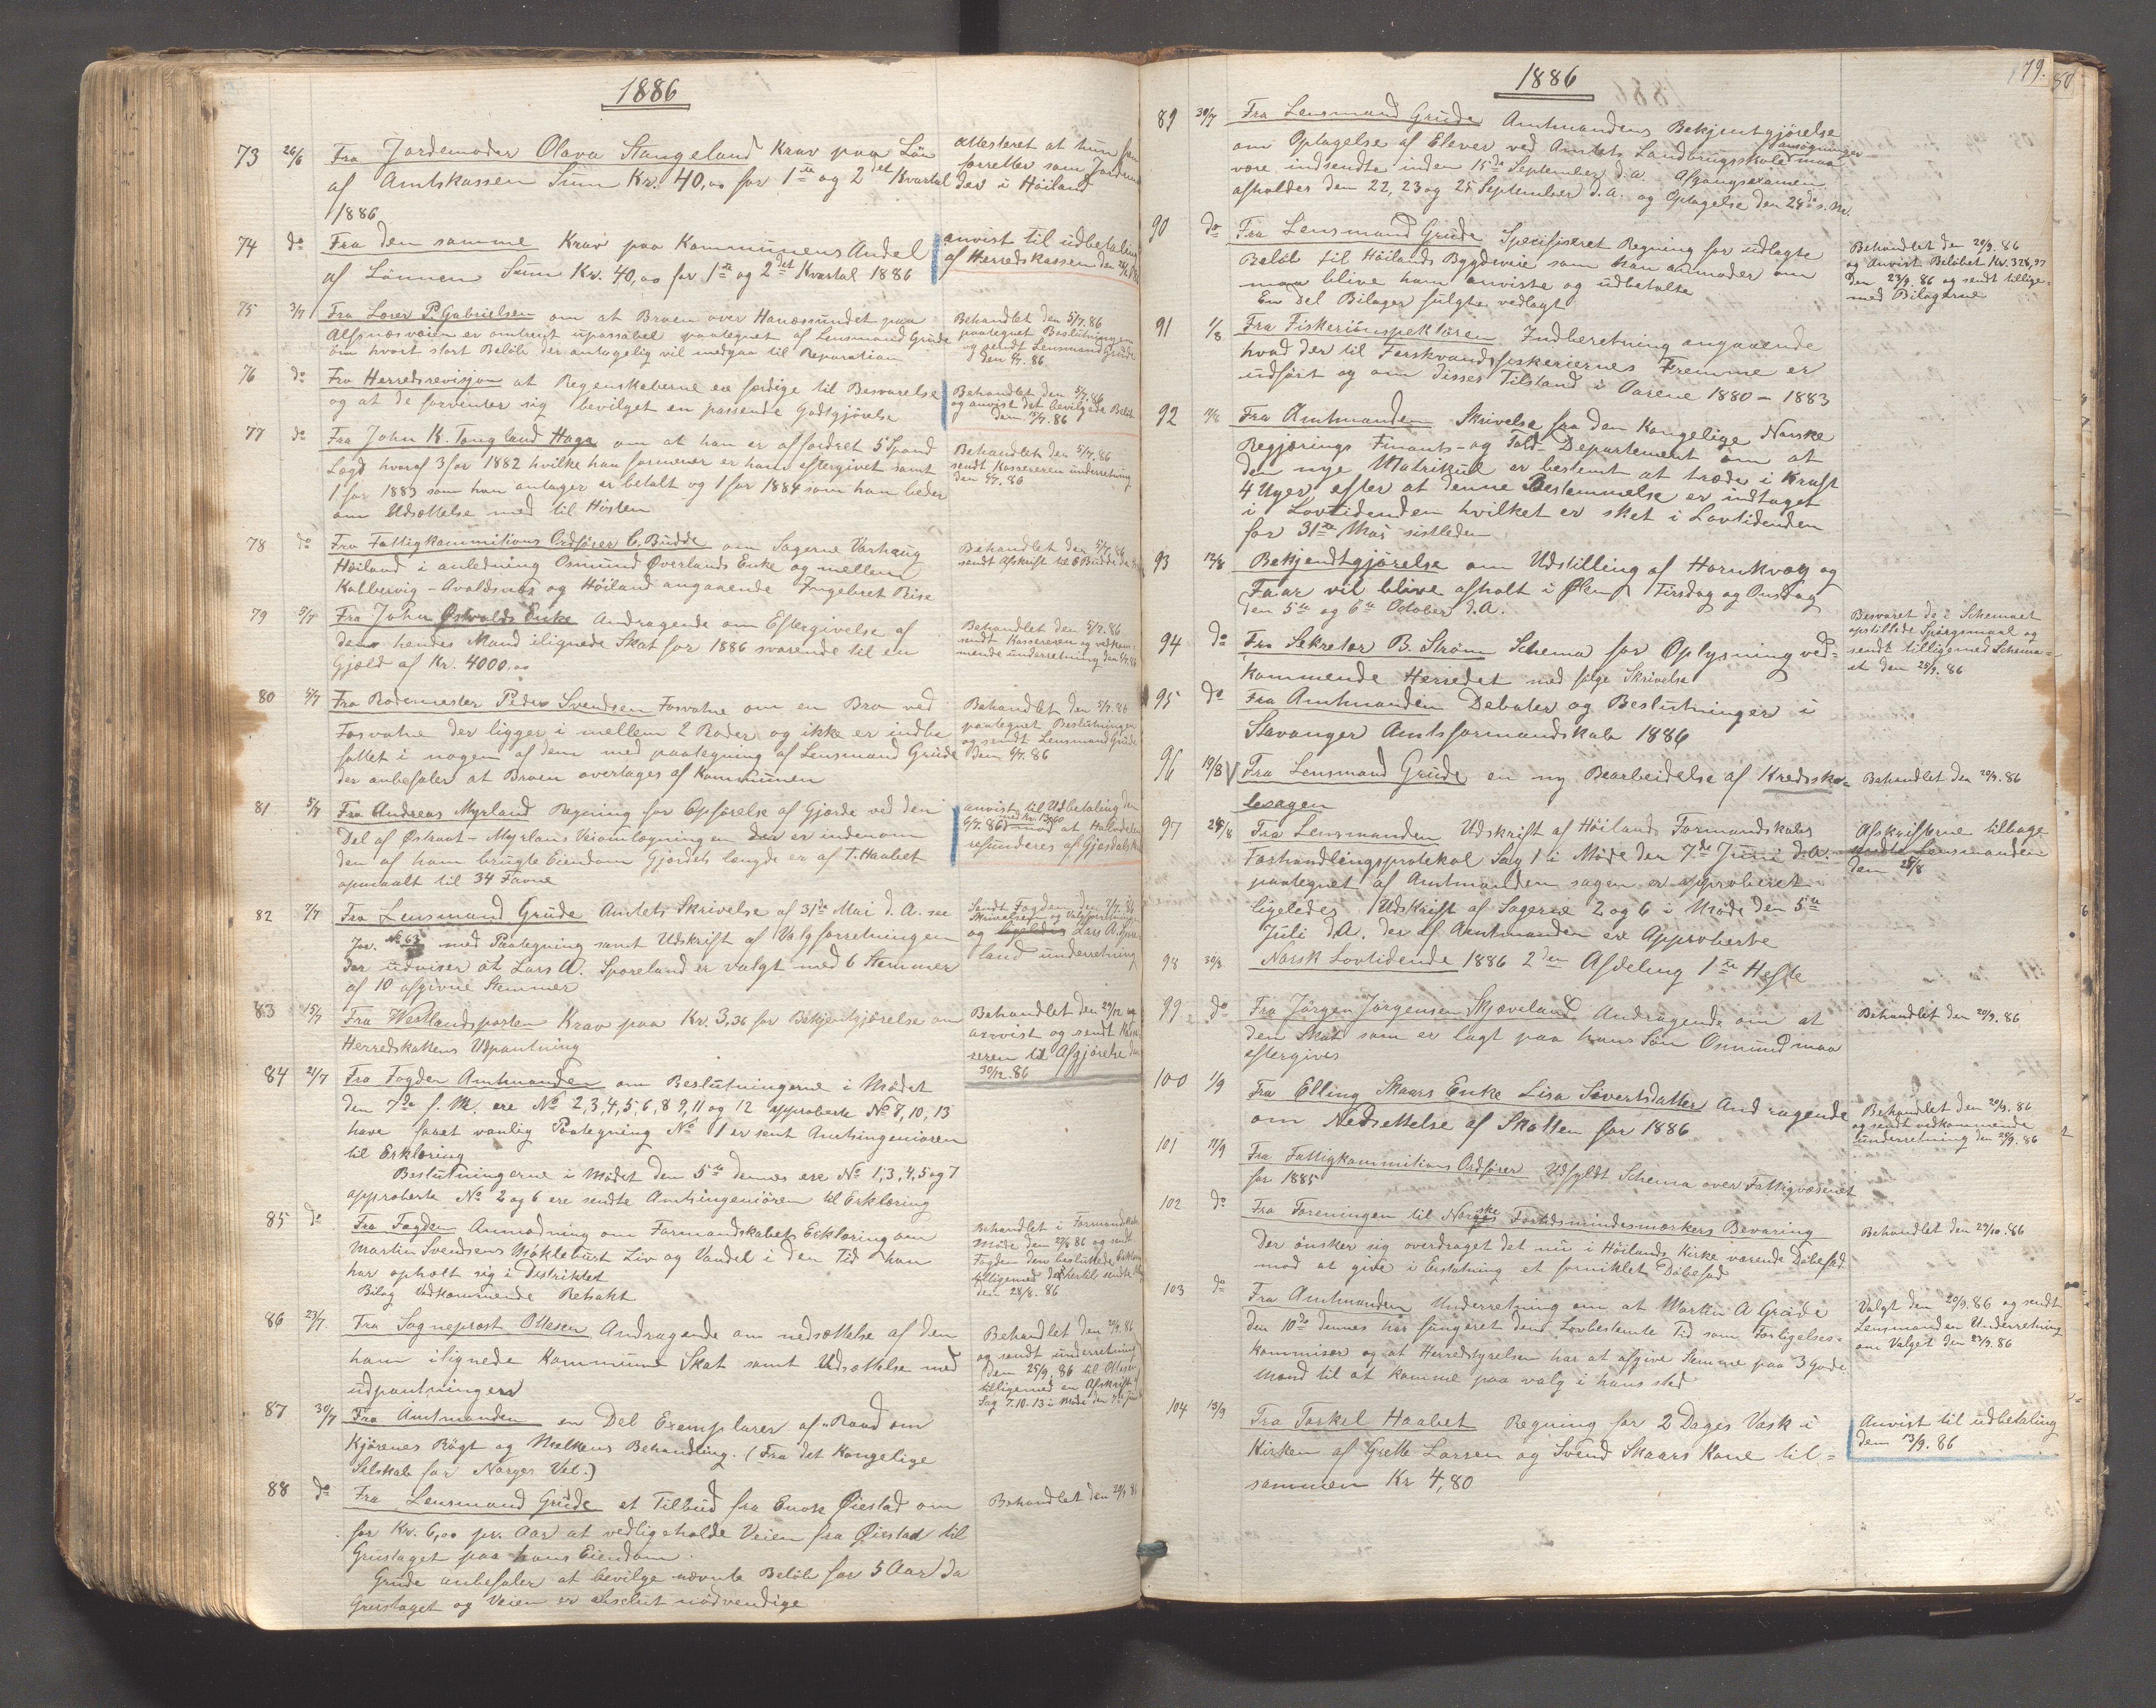 1886
73 26/6 Fra Jordemoder Olava Stangeland Krav paa Løn
af Amtskassen Sum Kr. 40,00 for 1ste og 2det Kvartal
1886
attesteret at hun
forretter som Jordmo
der i Höiland
74 do Fra den samme Krav paa Kommunens Andel
af Lønnen Sum Kr. 40,00 for 1ste og 2det Kvartal 1886
anvist til udbetaling
af Herredskassen den
75 3/7 Fra Lærer P. Gabrielsen om at Broen over Hanæssundet paa
Alsnæsveien er omtrent upassabel paategnet af Lensmand Grude
om hvort stort Beløb der antagelig vil medgaa til Reparation
Behandlet den 5/7. 86
paategnet Beslutningen
og sendt Lensmand Grude
den 6/7. 86
76 do Fra Herredsrevisjon at Regenskaberne ere færdige til Besvarelse
og at de forventer sig bevilget en passende Godtgjørelse
Behandlet den 5/7. 86
og anvist det bevilgede Beløb
77 do Fra John K. Tengland Haga om at han er affordret 5 Spand
Lægd hvoraf 3 for 1882 hvilke han formener er ham eftergivet samt
1 for 1883 som han antager er betalt og 1 for 1884 som han beder
om Udsættelse med til Høsten
Behandlet den 5/7. 86
sendt Kassereren underretning
den 6/7. 86
78 do Fra Fattigkommitions Ordfører C. Budde om Sagerne Varhaug
Höiland i anledning Osmund Øverlands Enke og mellem
Kobbervig - Avaldsnæs og Höiland angaaende Ingebret Rise
Behandlet den 5/7. 86
sendt Afskrift til C Budde
79 5/7 Fra John Østvolds Enke Andragende om Eftergivelse af
den hendes Mand ilignede Skat for 1886 svarende til en
Gjæld af Kr. 4000,00
Behandlet den 5/7. 86
sendt Kassereren og vedkom-
mende underretning den
80 5/7 Fra Rodemester Peder Svendsen Fosvatne om en Bro ved
Fosvatne der ligger i mellem 2 Roder og ikke er indbe
fattet i nogen af dem med paategning af Lensmand Grude
der anbefaler at Broen overtages af Kommunen
Behandlet den 5/7. 86
paategnet Beslutningen
og sendt Lensmand Grude
den 6/7. 86
81 5/7 Fra Andreas Myrland Regning for Opførelse af Gjærde ved den
Del af Østraat - Myrlans Veiomlægningen der er indenom
den af ham brugte Eiendom Gjerdets længde er af T. Haabet
opmaalt til 34 Favne
anvist til Udbetaling den
6/7. 86 med Kr. 13,60
mod at Halvdelen
refunderes af Gjesdals
82 7/7 Fra Lensmand Grude Amtets Skrivelse af 31te Mai d. A. se
Jor. No 63 med Paategning samt Udskrift af Valgforretningen
der udviser at Lars A. Sporeland er valgt med 6 Stemmer
af 10 afgivne Stemmer
Sendt Fogden den 7/7. 86
Skrivelsen og Valgforretningen
og ligeledes Lars A. Spore
land underretning
83 15/7 Fra Westlandsposten Krav paa Kr. 3,36 for Bekjentgjørelse om
Herredskattens Udpantning
Behandlet den 29/12 og
anvist og sendt Kasse
reren til Afgjørelse den
30/12. 86
84 21/7 Fra Fogden Amtmanden om Beslutningerne i Mødet
den 7de f. M. ere No 2,3,4,5,6,8 9,11 og 12 approberte No 7, 10, 13
have faaet vanlig Paategning No 1 er sent Amtsingeniøren
til Erklæring
Beslutningerne i Mødet den 5te dennes ere No 1,3,4,5 og 7
approberte No 2 og 6 ere sendte Amtsingeniøren til Erklæring
85 do Fra Fogden Anmodning om Formandskabets Erklæring om
Martin Svendsens Møklebust Liv og Vandel i den Tid han
har opholt sig i Distriktet
Bilag Vedkommende Retsakt
Behandlet i Formandskabs
Møde den 27/8 86 og sendt
Fogden den besluttede Erklæring
tilligemed
den 28/8. 86
86 23/7 Fra Sogneprest Ottesen Andragende om nedsættelse af den
ham ilignede Kommune Skat samt Udsættelse med
udpantningen
Behandlet den 20/9. 86
og sendt underretning
den 25/9. 86 til Ottesen
tilligemed en Afskrift
Sag 7. 10. 13 i Møde den
87 30/7 Fra Amtmanden en Del Exemplarer af "Raad om
Kjørenes Røgt og Melkens Behandling. (Fra det Kongelige
Selskab for Norges Vel.)
88 do Fra Lensmand Grude et Tilbud fra Enok Øiestad om
for Kr. 6,00 pr. Aar at vedligeholde Veien fra Øiestad til
Grustaget paa hans Eiendom.
Grude anbefaler at bevilge nævnte Beløb for 5 Aar da
Grustaget og Veien er absolut nødvendige
Behandlet den 20/9 86
1886
79. 80
89 30/7 Fra Lensmand Grude Amtmandens Bekjentgjørelse
om Optagelse af Elever ved Amtets Landbrugsskole ansøgninger maa
være indsendte inden 15de September d.A. Afgangsexamen
afholdes den 22, 23 og 25 September d.A. og Optagelse den 24de s.M.
90 do Fra Lensmand Grude Specifiseret Regning for udlagte
Beløb til Höilands Bygdeveie som han anmoder om
maa blive ham anviste og udbetalte
En Del Bilager fulgte vedlagt
Behandlet den 20/9. 86
og anvist Beløbet Kr. 328,97
den 23/9. 86 og sendt tillige-
med Bilagerne
91 1/8 Fra Fiskeriinspektøren Indberetning angaaende
hvad der til Ferskvandsfiskeriernes Fremme er
udført og om disses Tilstand i Aarene 1880 - 1883
92 Fra Amtmanden Skrivelse fra den Kongelige Norske
Regjærings Finants- og Told-Departement om at
den nye Matrikul er bestemt at træde i Kraft
4 Uger efter at denne Bestemmelse er indtaget
i Lovtidenden hvilket er sket i Lovtidenden
for 31te Mai sistleden
93 12/8 Bekjendtgjørelse om Udstilling af Hornkvæg og
Faar vil blive afholt i Øksnæ Tirsdag og Onsdag
den 5te og 6te October d.A.
94 do Fra Sekretær B. Strøm Schema for Oplysning ved-
kommende Herredet med følge Skrivelse
Besvaret de i Schemaet
opstillede Spørgsmaal og
sendt tilligemed Schema-
et den 25/9. 86
95 do Fra Amtmanden Debater og Beslutninger i
Stavanger Amtsformandskab 1886
96 19/8 Fra Lensmand Grude en ny Bearbeidelse af Kredssko-
lesagen
Behandlet den 20/9. 86
97 24/8 Fra Lensmanden Udskrift af Höilands Formandskabs
Forhandlingsprotokol Sag 1 i Møde den 7de Juni d.A.
paategnet af Amtmanden sagen er approberet
ligeledes 1 Udskrift af Sagerne 2 og 6 i Møde den 5te
Juli d.A. der af Amtmanden ere Approberte
Afskrifterne tilbage
sendte Lensmanden
den 28/8
98 30/8 Norsk Lovtidende 1886 2den Afdeling 1ste Hefte
99 do Fra Jørgen Jørgensen Skjæveland Andragende om at
den Skat som er lagt paa hans Søn Osmund maa
eftergives
Behandlet den 20/9. 86
100 1/9 Fra Elling Skaars Enke Lisa Sivertsdatter Andragende
om Nedsettelse af Skatten for 1886
Behandlet den 20/9. 86
og sendt vedkommende
underretning den 25/9. 86
101 11/9 Fra Fattigkommitions Ordfører Udfyldt Schema over Fattigvæsenet
for 1885
102 do Fra Foreningen til Norske Fortidsmindesmærkers Bevaring
Der ønsker sig overdraget det nu i Höilands Kirke værende Døbefad
mod at give i Erstatning et forniklet Døbefad
Behandlet den 29/10. 86
103 do Fra Amtmanden Underretning om at Martin A Grude
den 10de dennes har fungeret den Lovbestemte Tid som Forligelses-
kommisær og at Herredstyrelsen har at afgive Stemme paa 3 gode
Mænd til at komme paa valg i hans sted
Valgt den 20/9. 86 og sendt
Lensmanden Underretning
om Valget den 27/9. 86
104 13/9 Fra Torkel Haabet Regning for 2 Dages Vask i
Kirken af Grette Larsen og Svend Skaars Kone til-
sammen Kr 4,80
Anvist til udbetaling
den 13/9. 86